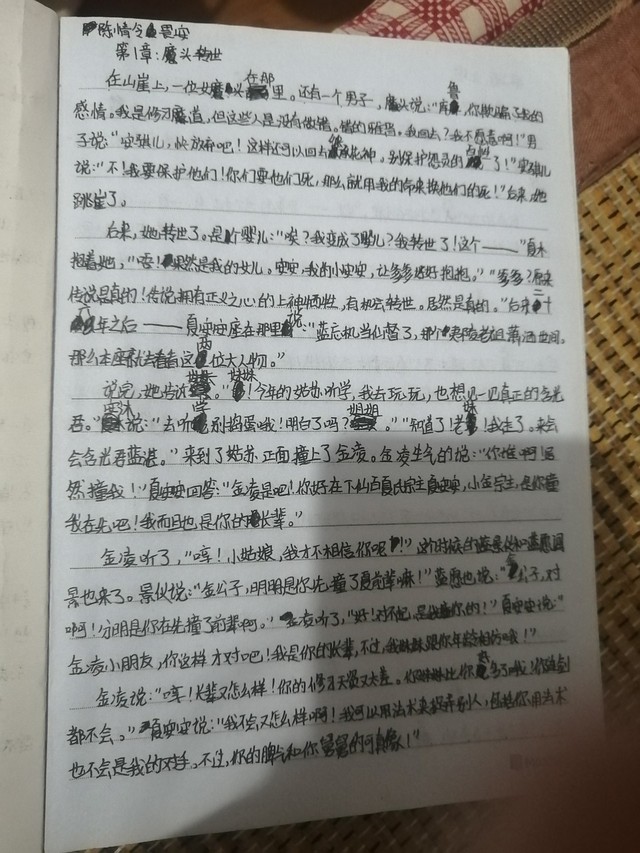 陈情令 晏安
第1章:魔头转世
在山崖上,一位女魔头在那里。还有一个男子,魔头说:"鲁,你欺骗了我的
感情。我是修习魔道,但这些人是没有做错。错的啊,我回去?我不愿意啊!"男
子说:"安琪儿,快放弃吧!这样还可以回去做死神。别保护愚昧的白痴了!"安琪儿
说:"不!我要保护他们!你们要他们死,那么就用我的命来换他们的死!"后来,她
跳崖了。
后来,她转世了。是个婴儿:"唉?我变成了婴儿?我转世了!这个——"夏木
抱着她,"唔!果然是我的女儿。安安,我的小安安,让爹爹好好抱抱。""爹爹?原来
传说是真的!传说拥有正义之心的上神牺牲,有机会转世。居然是真的。"后来二十
八年之后——夏安安座在那里说:"蓝忘机当仙督了,那个夷陵老祖潇洒世间。
那么本座就去看看这两位大人物。"
说完,她告诉姐妹。"妹妹!今年的姑苏听学,我去玩玩,也想见一见真正的含光
君。"安沐说:"去听学别捣蛋哦!明白了吗?姐姐""知道了!老妹!我走了。来会
会含光君蓝湛。"来到了姑苏正面撞上了金凌。金凌生气的说:"你谁啊!居
然撞我!"夏安安回答:"金凌是吧!你好在下仙百夏氏宗主夏安安,小金宗主,是你撞
我在先吧!我而且也是你的长辈。"
金凌听了,"哼!小姑娘,我才不相信你呢!"这个时候的蓝景仪和蓝愿
也来了。景仪说:"金公子,明明是你先撞了夏前辈嘛!"蓝愿也说:"金公子,对
啊!分明是你在先撞了前辈啊。"金凌听了,"好!对不起,是我撞你的!"夏安安说:"
金凌小朋友,你这样才对吧!我是你的长辈,不过,我妹妹跟你年龄相仿哦!"
金凌说:"哼!长辈又怎么样!你的修习天资又太差。你妹妹比你高多了哦!你连剑
都不会。"夏安安说:"我不会又怎么样啊!我可以用法术来探弄别人,但给你用法术
也不会是我的对手。不过,你的脾气和你舅舅的可真像!"